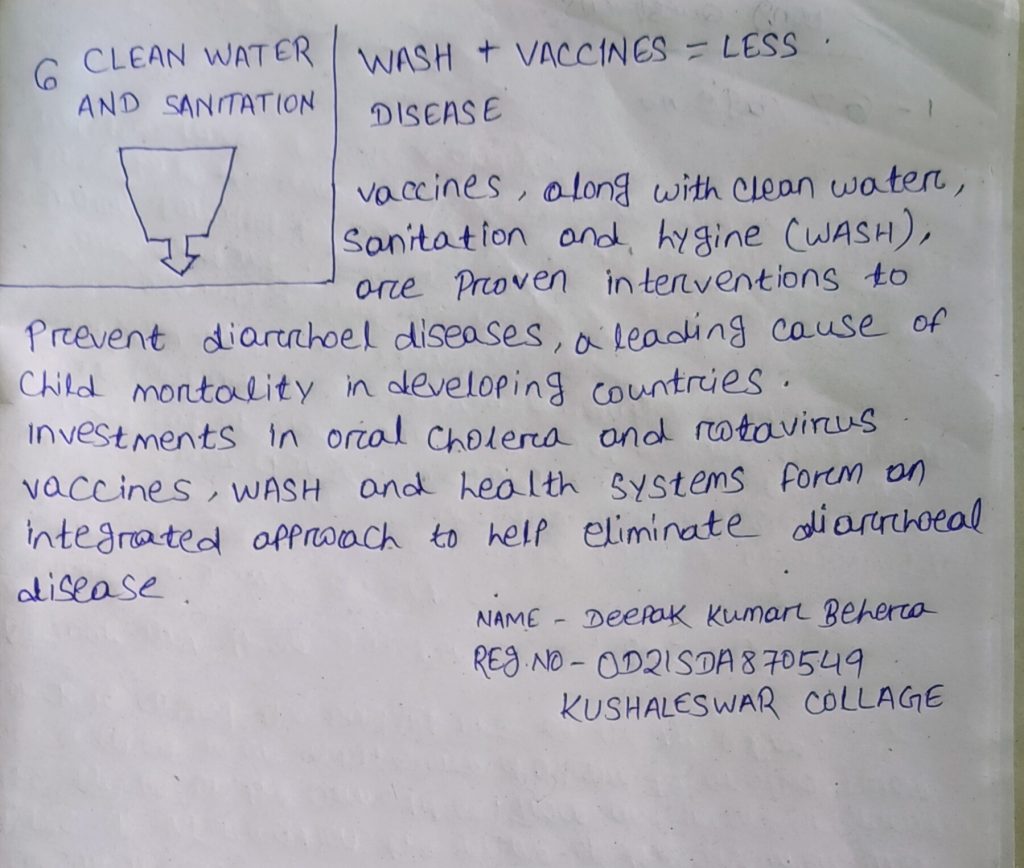 6 CLEAN WATER
AND SANITATION
WASH + VACCINES = LESS
DISEASE
vaccines, along with clean water,
sanitation and hygine (WASH),
are Proven interventions to
Prevent diarrhoel diseases, a leading cause of
Child mortality in developing countries.
investments in oral cholera and rotavirus
vaccines, WASH and health systems form an
integrated approach to help eliminate diarrhoeal
disease.
NAME - Deepak Kumar Behera
REg. NO - OD21SDA870549
KUSHALESWAR COLLAGE